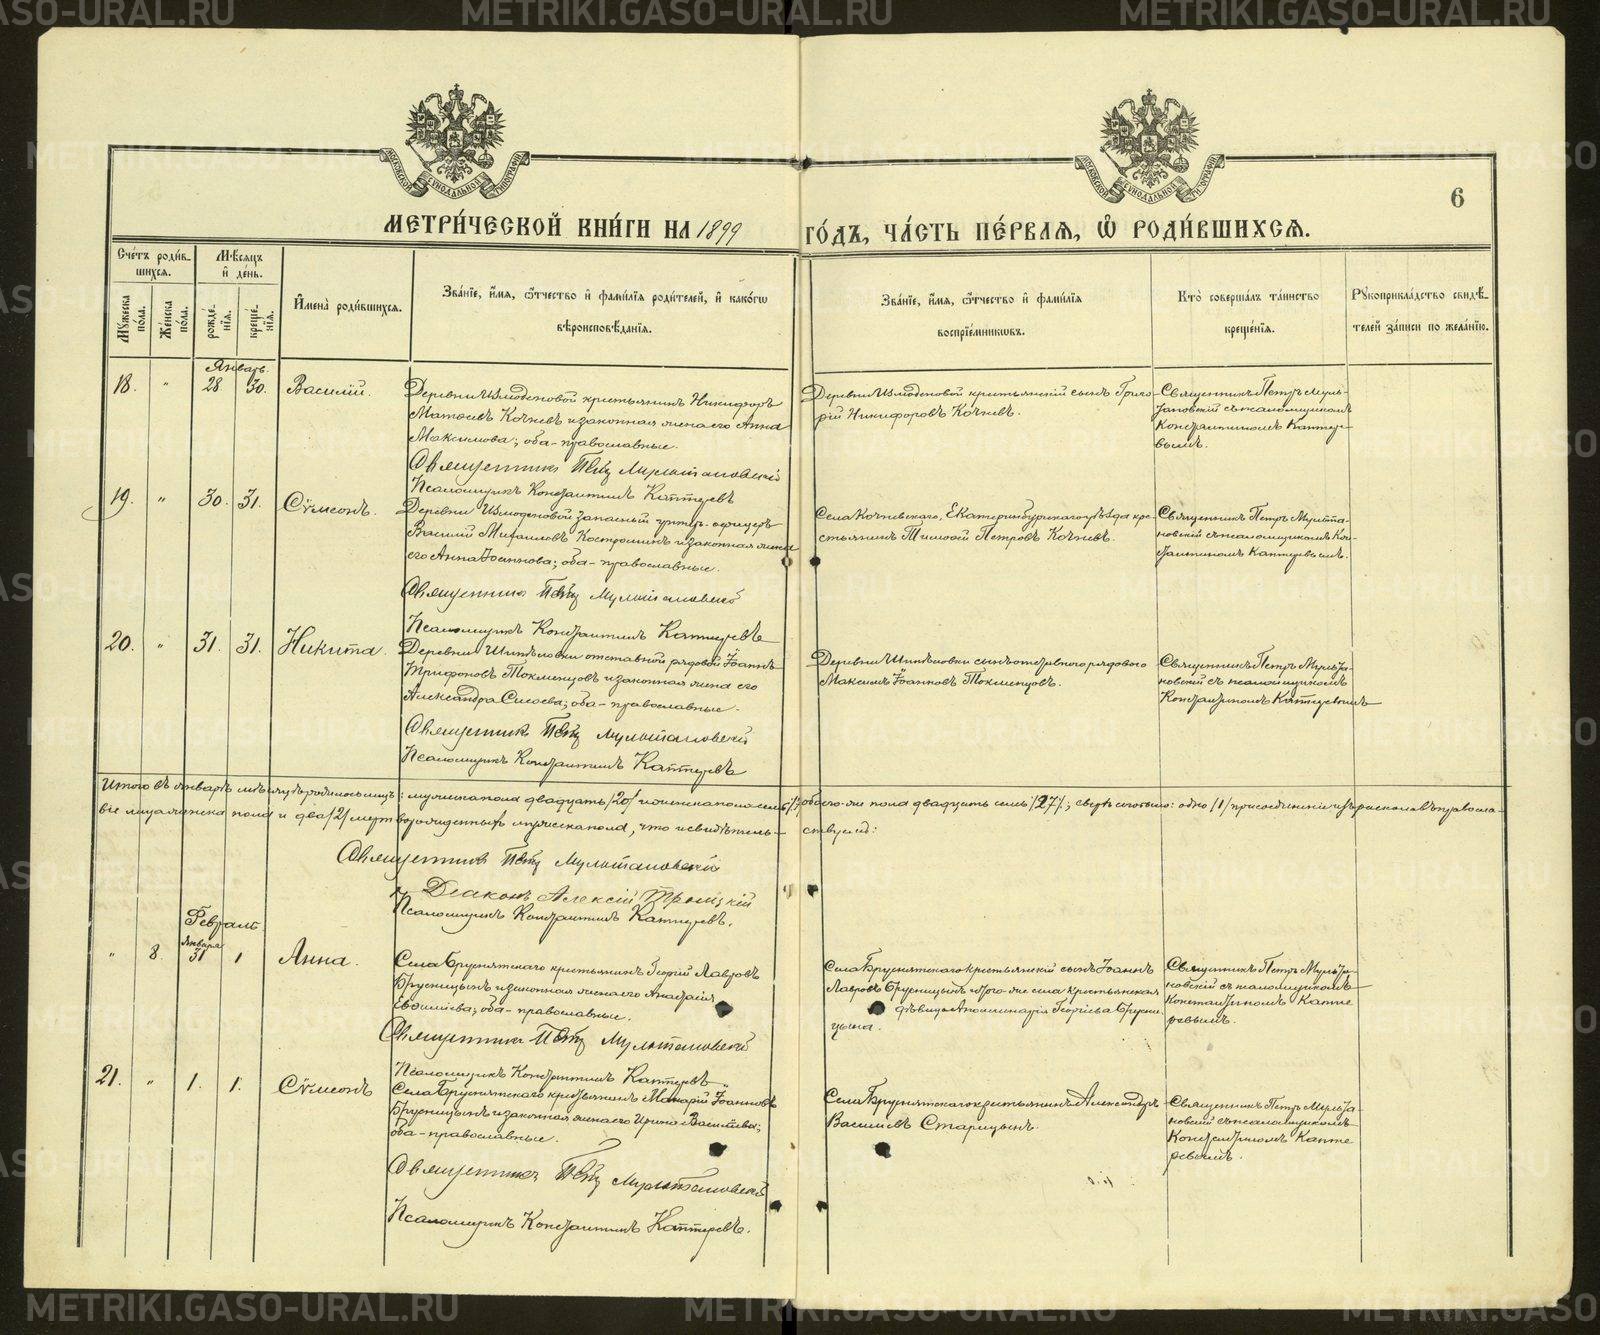 METRIKI.GASO-URAL.RU
6
МЕТРИ́ЧЕСКОЙ КНИ́ГИ НА 1899 ГО́ДЪ, ЧА́СТЬ ПЕ́РВАЯ, Ѡ РОДИ́ВШИХСЯ.
Сче́тъ роди́вшихся.
Мѣ́сяцъ и де́нь.
Му́жеска по́ла.
Же́нска по́ла.
рожде́нія.
креще́нія.
Имена̀ роди́вшихся.
Зва́ніе, и́мя, ѻ҆́тчество и фами́лія роди́телей, и како́гѡ
вѣроисповѣ́данія.
Зва́ніе, и́мя, ѻ҆́тчество и фами́лія
воспріе́мниковъ.
Кто̀ соверша́лъ та́инство
креще́нія.
Рукоприкла́дство свидѣ́-
телей за́писи по жела́нію.
Январь.
18. " 28 30. Василій.
Деревни крестьянинъ Никифоръ
Матѳіевъ Кочневъ и законная жена его Анна
Максимова; оба-православные.
Священникъ Петръ Мультановскій
Псаломщикъ Константинъ Каптеревъ
Деревни крестьянскій сынъ Григо-
рій Никифоровъ Кочневъ.
Священникъ Петръ Муль-
тановскій съ псаломщикомъ
Константиномъ Каптер-
вымъ.
19. " 30. 31. Сѵмеонъ.
Деревни запасный унтеръ-офицеръ
Василій Михаиловъ Костроминъ и законная жена
его Анна Іоаннова; оба-православные.
Священникъ Петръ Мультановскій
Псаломщикъ Константинъ Каптеревъ
Села Кочневскаго, Екатеринбургскаго уѣзда кре-
стьянинъ Тимоѳей Петровъ Кочневъ.
Священникъ Петръ Мульта-
новскій съ псаломщикомъ Кон-
стантиномъ Каптеревымъ.
20. " 31. 31. Никита.
Деревни отставной рядовой Іоаннъ
Трифоновъ Токменцовъ и законная жена его
Александра Сисоева; оба-православные.
Священникъ Петръ Мультановскій
Псаломщикъ Константинъ Каптеревъ
Деревни сынъ рядового
Максимъ Іоанновъ Токменцовъ.
Священникъ Петръ Мульта-
новскій съ псаломщикомъ
Константиномъ Каптеревымъ
Итого въ январѣ мѣсяцѣ родилось: мужеска пола двадцать /20/ и женска пола семь /7/ обоего же пола двадцать семь /27/; сверхъ сего: одно /1/ присоединен изъ раскола въ правосла-
віе лица женска пола и два /2/ мертворожденныхъ мужеска пола, что и свидѣтель-
ствуемъ:
Священникъ Петръ Мультановскій
Діаконъ Алексій Троицкій
Псаломщикъ Константинъ Каптеревъ.
Февраль
" 8. Января 31 1 Анна.
Села Бруснятскаго крестьянинъ Георгій Лавровъ
Брусницынъ и законная жена его Анастасія
Евфиміева; оба-православные.
Священникъ Петръ Мультановскій
Псаломщикъ Константинъ Каптеревъ
Села Бруснятскаго крестьянскій сынъ Іоаннъ
Лавровъ Брусницынъ и того-же села крестьянская
дѣвица Аполлинарія Георгіева Брусни-
цына.
Священникъ Петръ Мульта-
новскій съ псаломщикомъ
Константиномъ Капте
ревымъ.
21. " 1. 1. Сѵмеонъ
Села Бруснятскаго крестьянинъ Макарій Іоанновъ
Брусницынъ и законная жена его Ирина Васильева;
оба-православные.
Священникъ Петръ Мультановскій
Псаломщикъ Константинъ Каптеревъ.
Села Бруснятскаго крестьянинъ Александръ
Васильевъ Старицынъ.
Священникъ Петръ Мульта-
новскій съ псаломщикомъ
Константиномъ Капте
ревымъ.